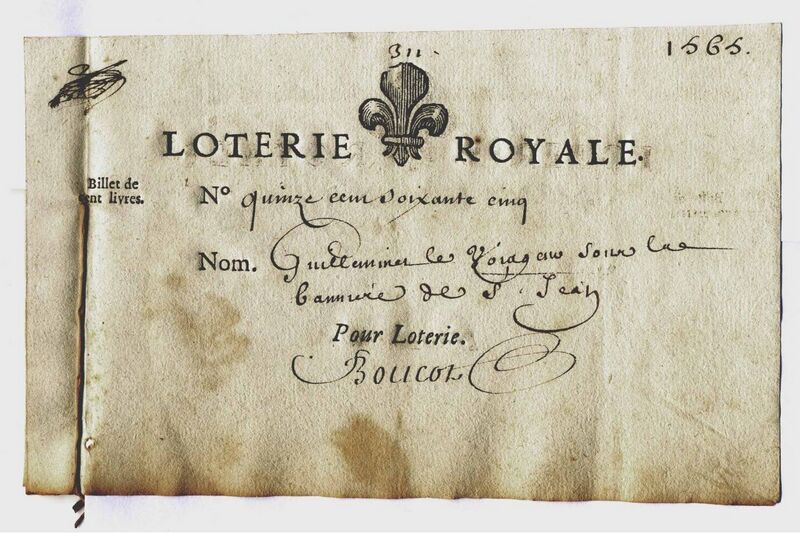 311.
1565.
LOTERIE ROYALE.
Billet de
cent livres.
No quinze cent soixante cinq
Nom. Guilleminet le Voyageur sous la
banniere de S. Jean
Pour Loterie.
Boucot